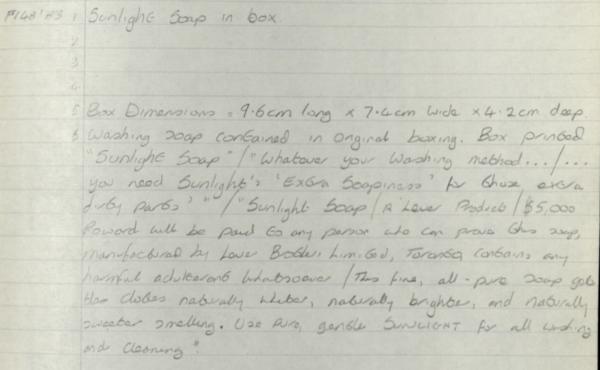 P148'83 1 Sunlight Soap in box.
2
3
4
5 Box Dimensions = 9.6cm long x 7.4cm wide x 4.2cm deep.
6 Washing soap contained in original boxing. Box printed
"Sunlight Soap" / "Whatever your washing method.../...
you need Sunlight's 'Extra Soapiness' for those extra
dirty parts' " / "Sunlight Soap / A Lever Product / $5,000
Reward will be paid to any person who can prove this soap,
manufactured by Lever Brothers Limited, Toronto contains any
harmful adulterant whatsoever / This fine, all-pure soap gets
the clothes naturally whiter, naturally brighter, and naturally
sweeter smelling. Use pure, gentle SUNLIGHT for all washing
and cleaning".